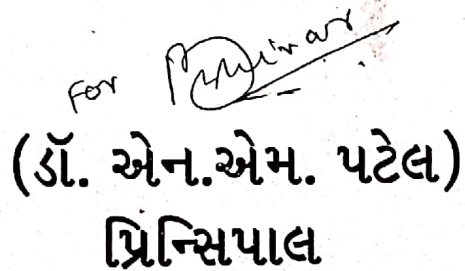 For
(ડૉ. એન.એમ. પટેલ)
પ્રિન્સિપાલ